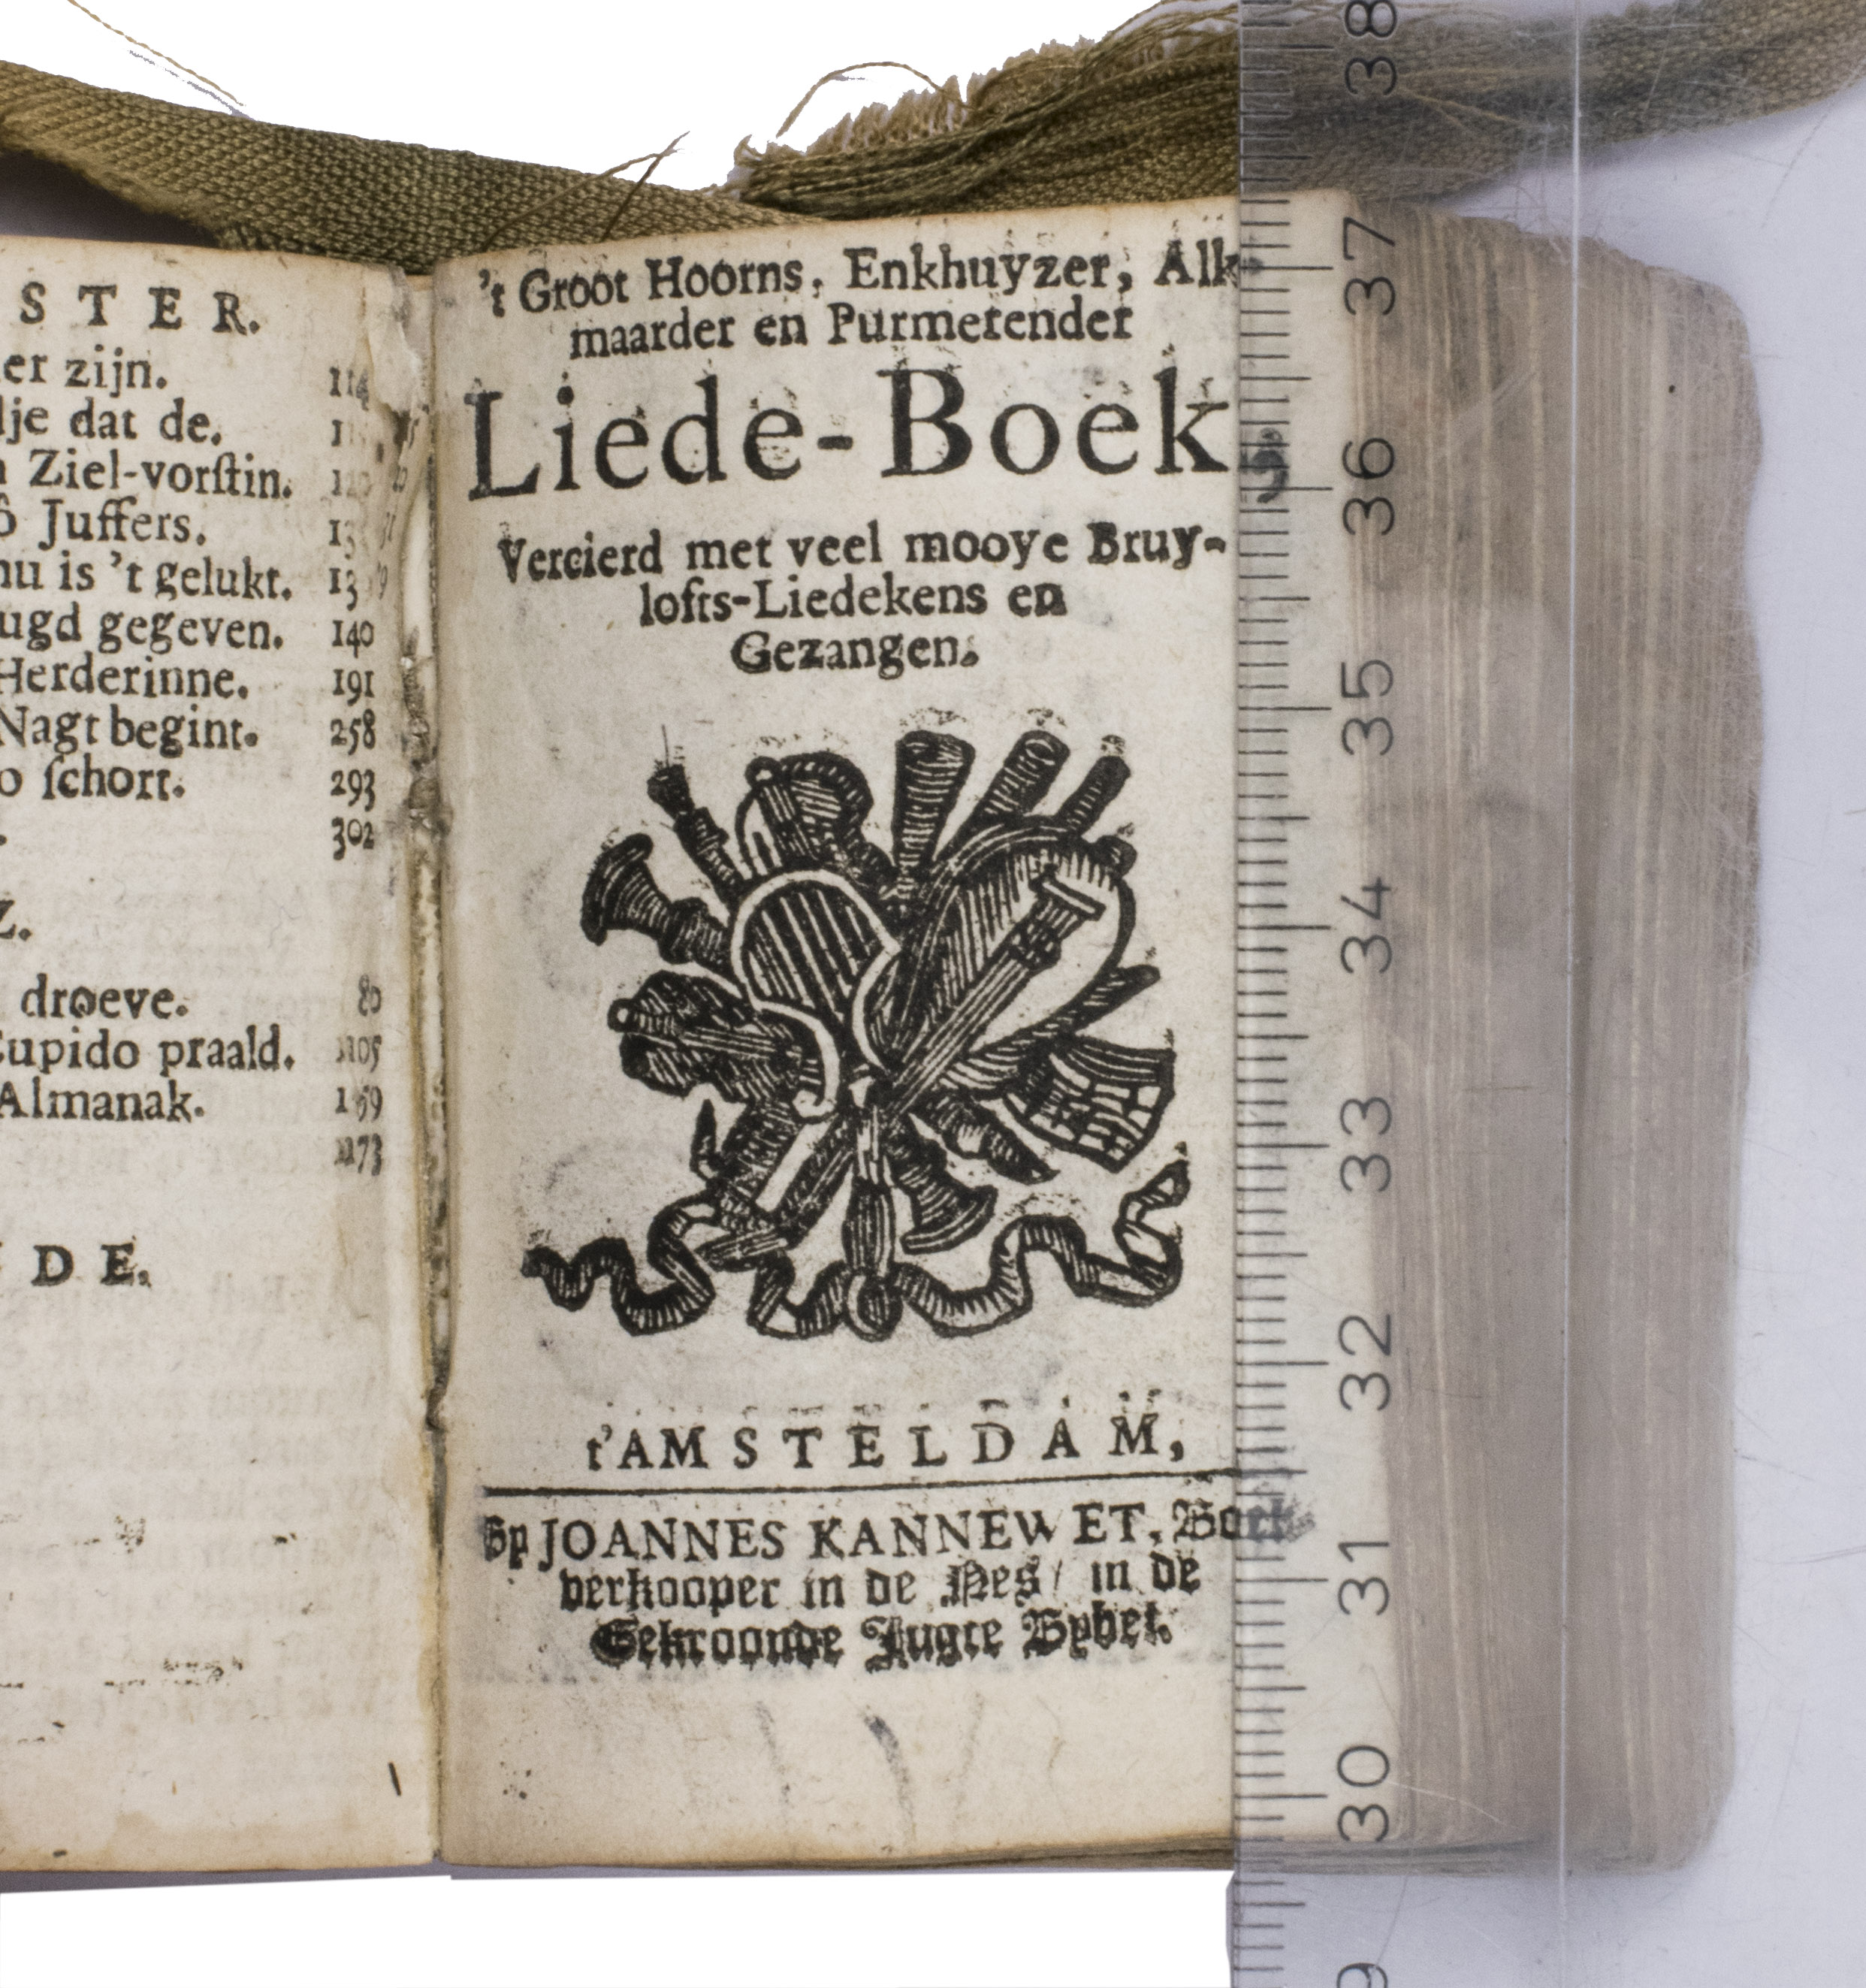 STER.
er zijn. 114
dje dat de.
Ziel-vorſtin.
ô Juffers.
nu is 't gelukt.
ugd gegeven. 140
Herderinne. 191
Nagt begint. 258
o ſchort. 293
302
Z.
droeve. 80
Cupido praald. 105
Almanak. 169
173
DE.
't Groot Hoorns, Enkhuyzer, Alk-
maarder en Purmerender
Liede-Boek,
Vercierd met veel mooye Bruy-
lofts-Liedekens en
Gezangen.
t'AMSTELDAM,
By JOANNES KANNEWET, Boek
verkooper in de Nes/ in de
Gekroonde Jugte Bybel.
38
37
36
35
34
33
32
31
30
9